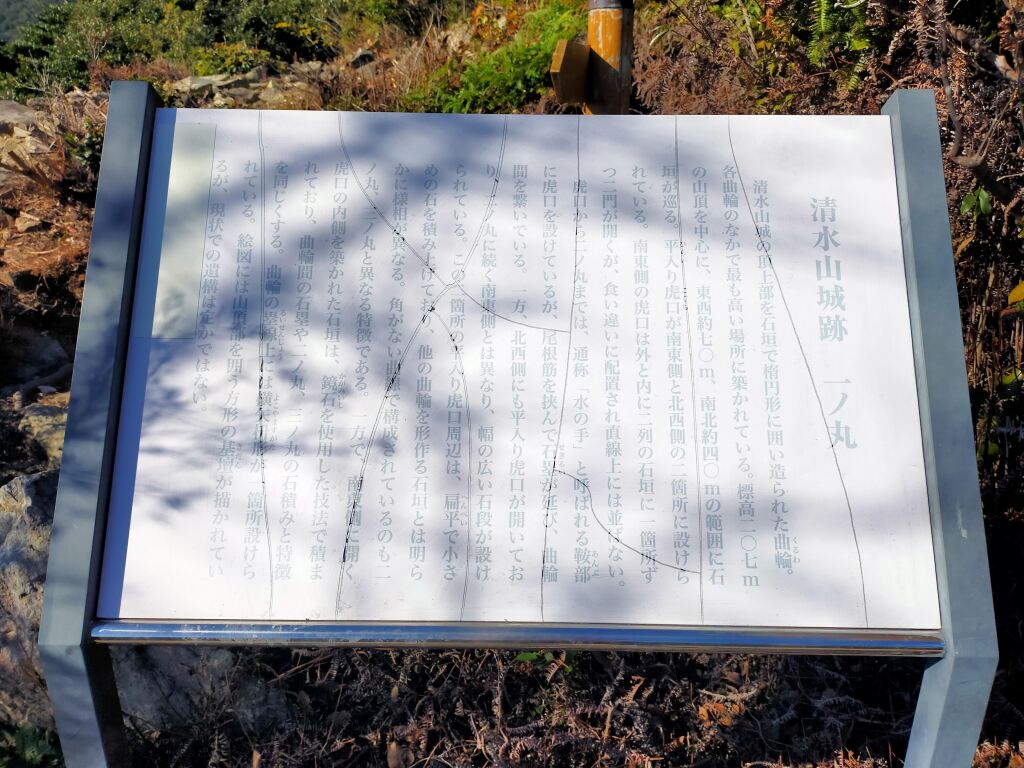 清水山城跡 一ノ丸
清水山城の頂上部を石垣で楕円形に囲い造られた曲輪。
くるわ
各曲輪のなかで最も高い場所に築かれている。標高二〇七m
の山頂を中心に、東西約七〇m、南北約四〇mの範囲に石
垣が巡る。平入り虎口が南東側と北西側の二箇所に設けら
れている。南東側の虎口は外と内に二列の石垣に一箇所ず
つ二門が開くが、食い違いに配置され直線上には並ばない。
虎口から二ノ丸までは、通称「水の手」と呼ばれる鞍部
あんぶ
に虎口を設けているが、尾根筋を挟んで石塁が延び、曲輪
せきるい
間を繋いでいる。一方、北西側にも平入り虎口が開いてお
り、二ノ丸に続く南東側とは異なり、幅の広い石段が設け
られている。この二箇所の平入り虎口周辺は、扁平で小さ
へんぺい
めの石を積み上げており、他の曲輪を形作る石垣とは明ら
かに様相が異なる。角がない曲線で構成されているのも二
ノ丸、三ノ丸と異なる特徴である。一方で、南東側に開く
虎口の内側を築かれた石垣は、鏡石を使用した技法で積ま
かがみいし
れており、曲輪間の石塁や二ノ丸、三ノ丸の石積みと特徴
を同じくする。曲輪の塁線上には横矢枡形が一箇所設けら
るいせんじょう
れている。絵図には山頂部を囲う方形の基壇が描かれてい
るが、現状での遺構は定かではない。